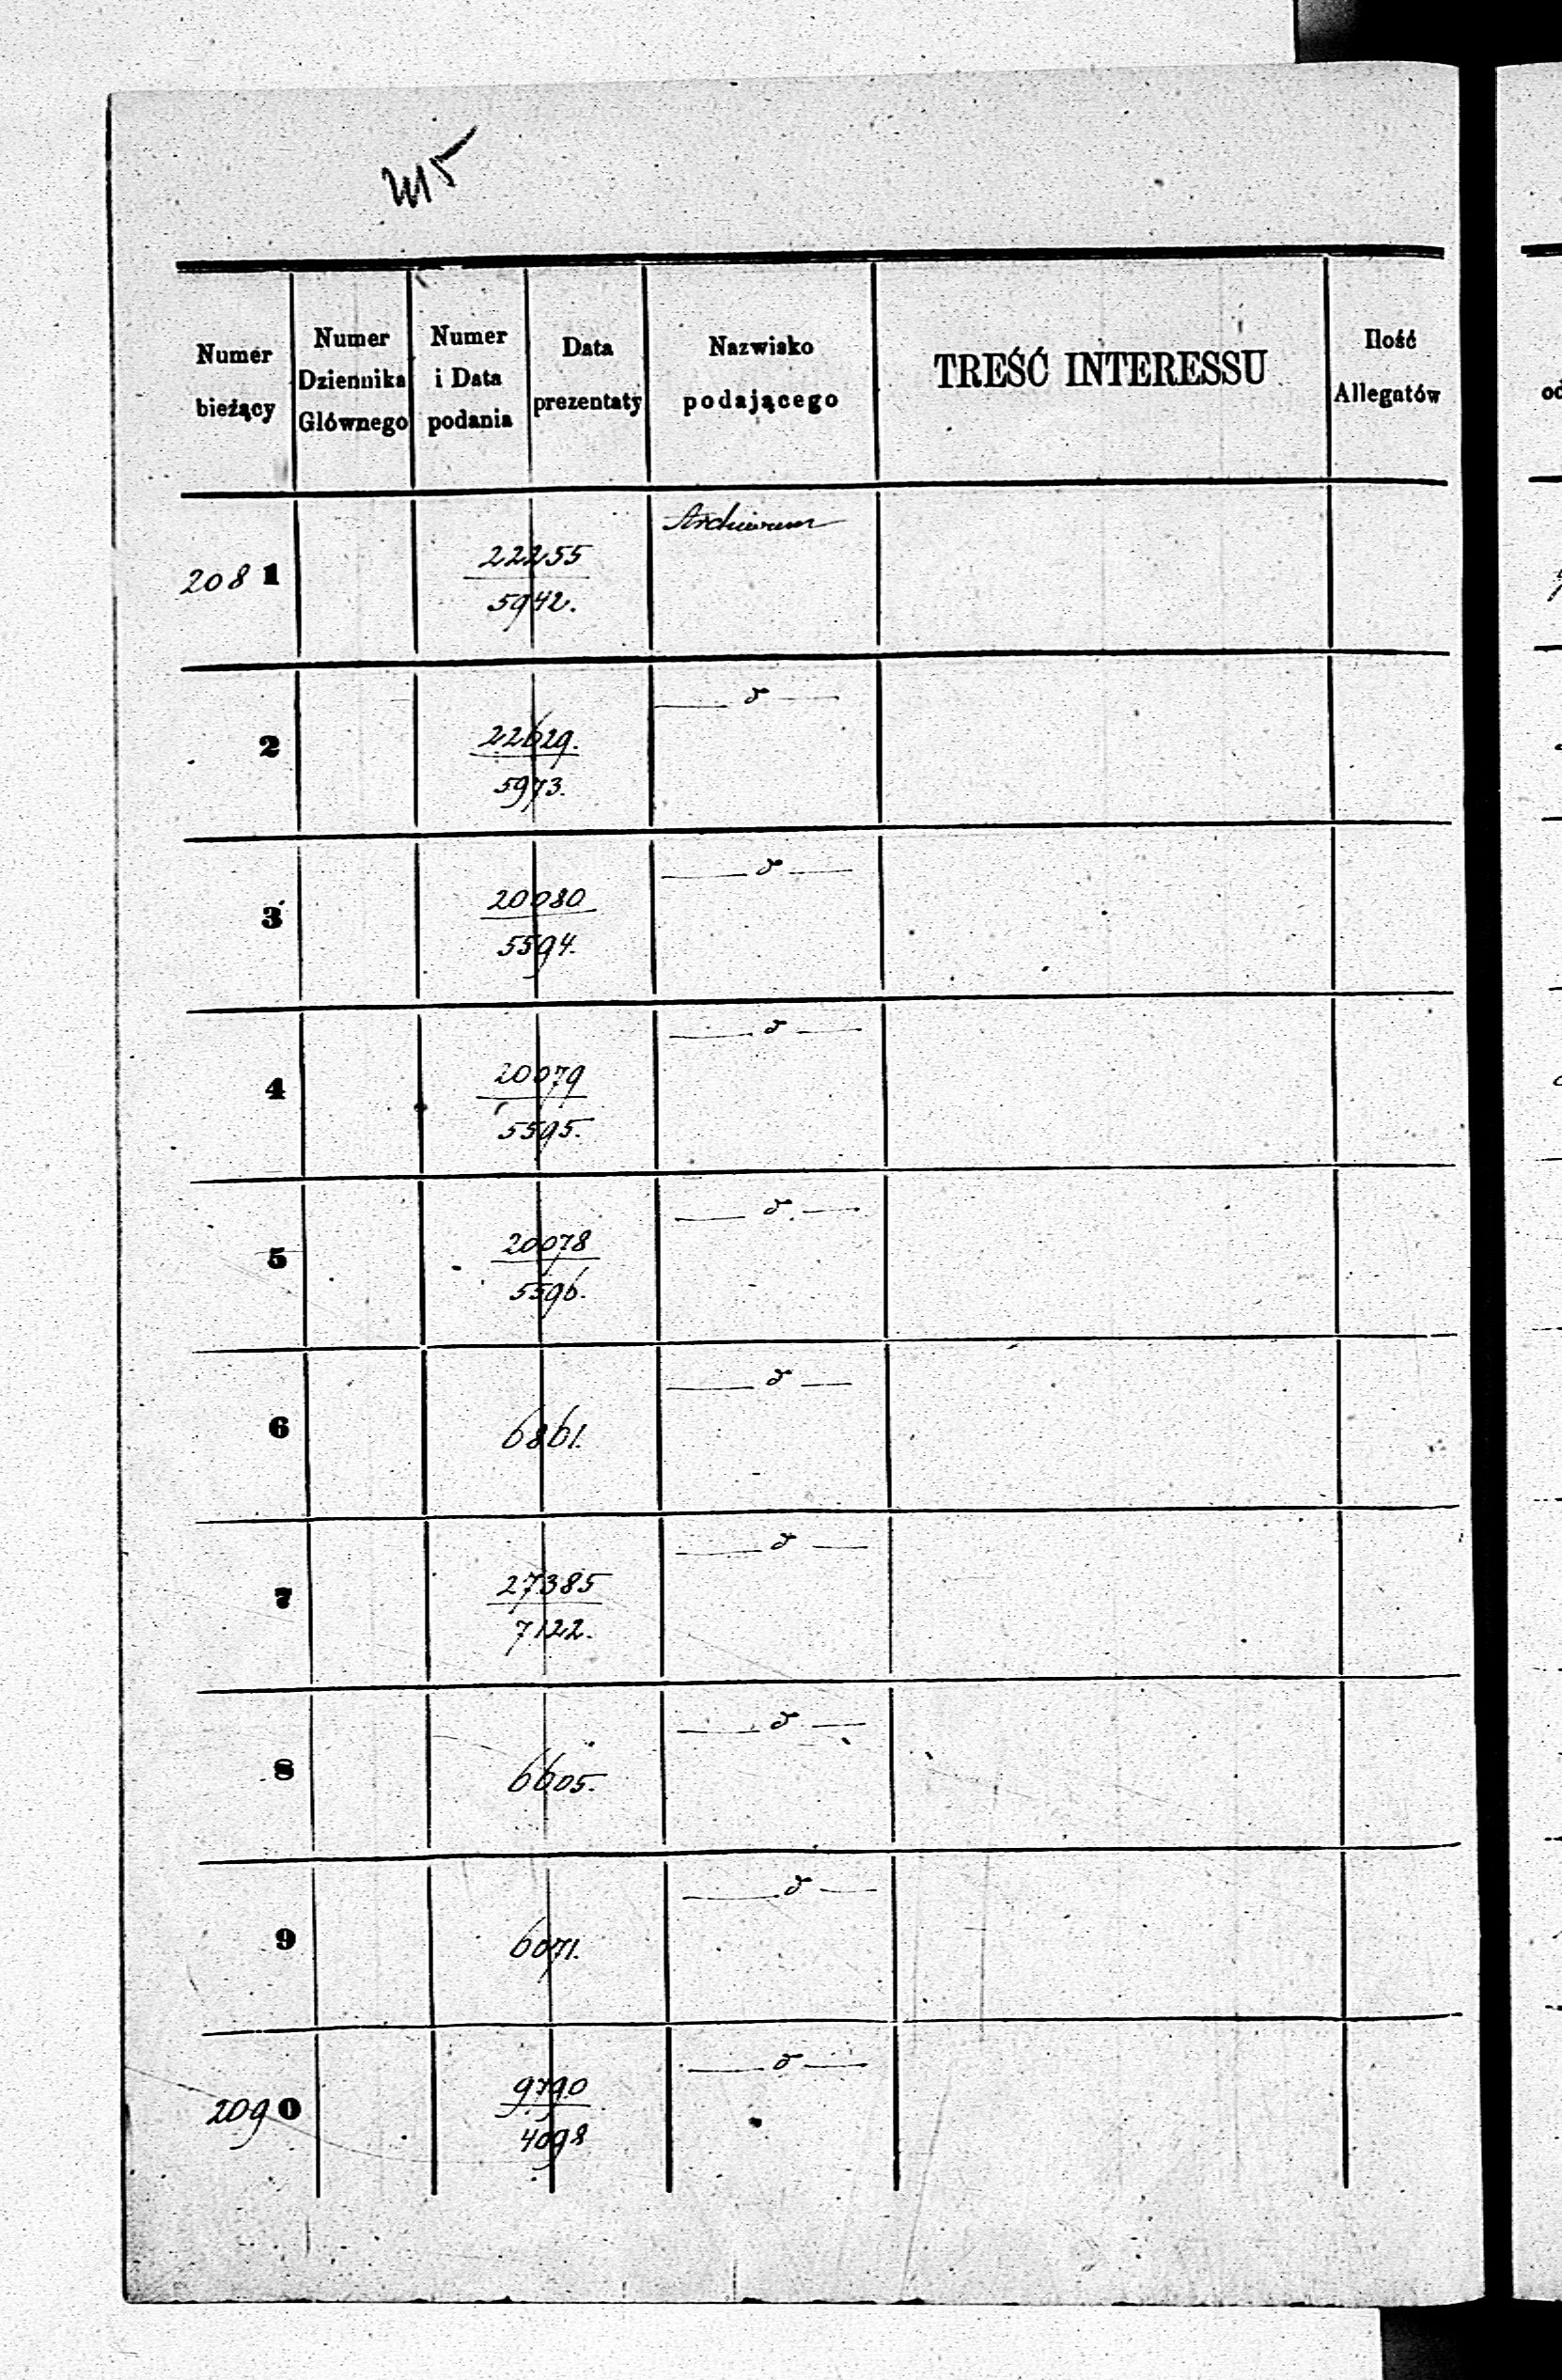 Numer bieżący
Numer Dziennika Głównego
Numer i Data podania
Data prezentaty
Nazwisko podającego
TREŚĆ INTERESSU
Ilość Allegatów
Archiwum
2081
22255
5942.
2
22629.
5973.
3
20080
5594.
4
20079
5595.
5
20078
5596.
6
6861.
7
27385
7122.
8
6605.
9
6071.
2090
9790
4098